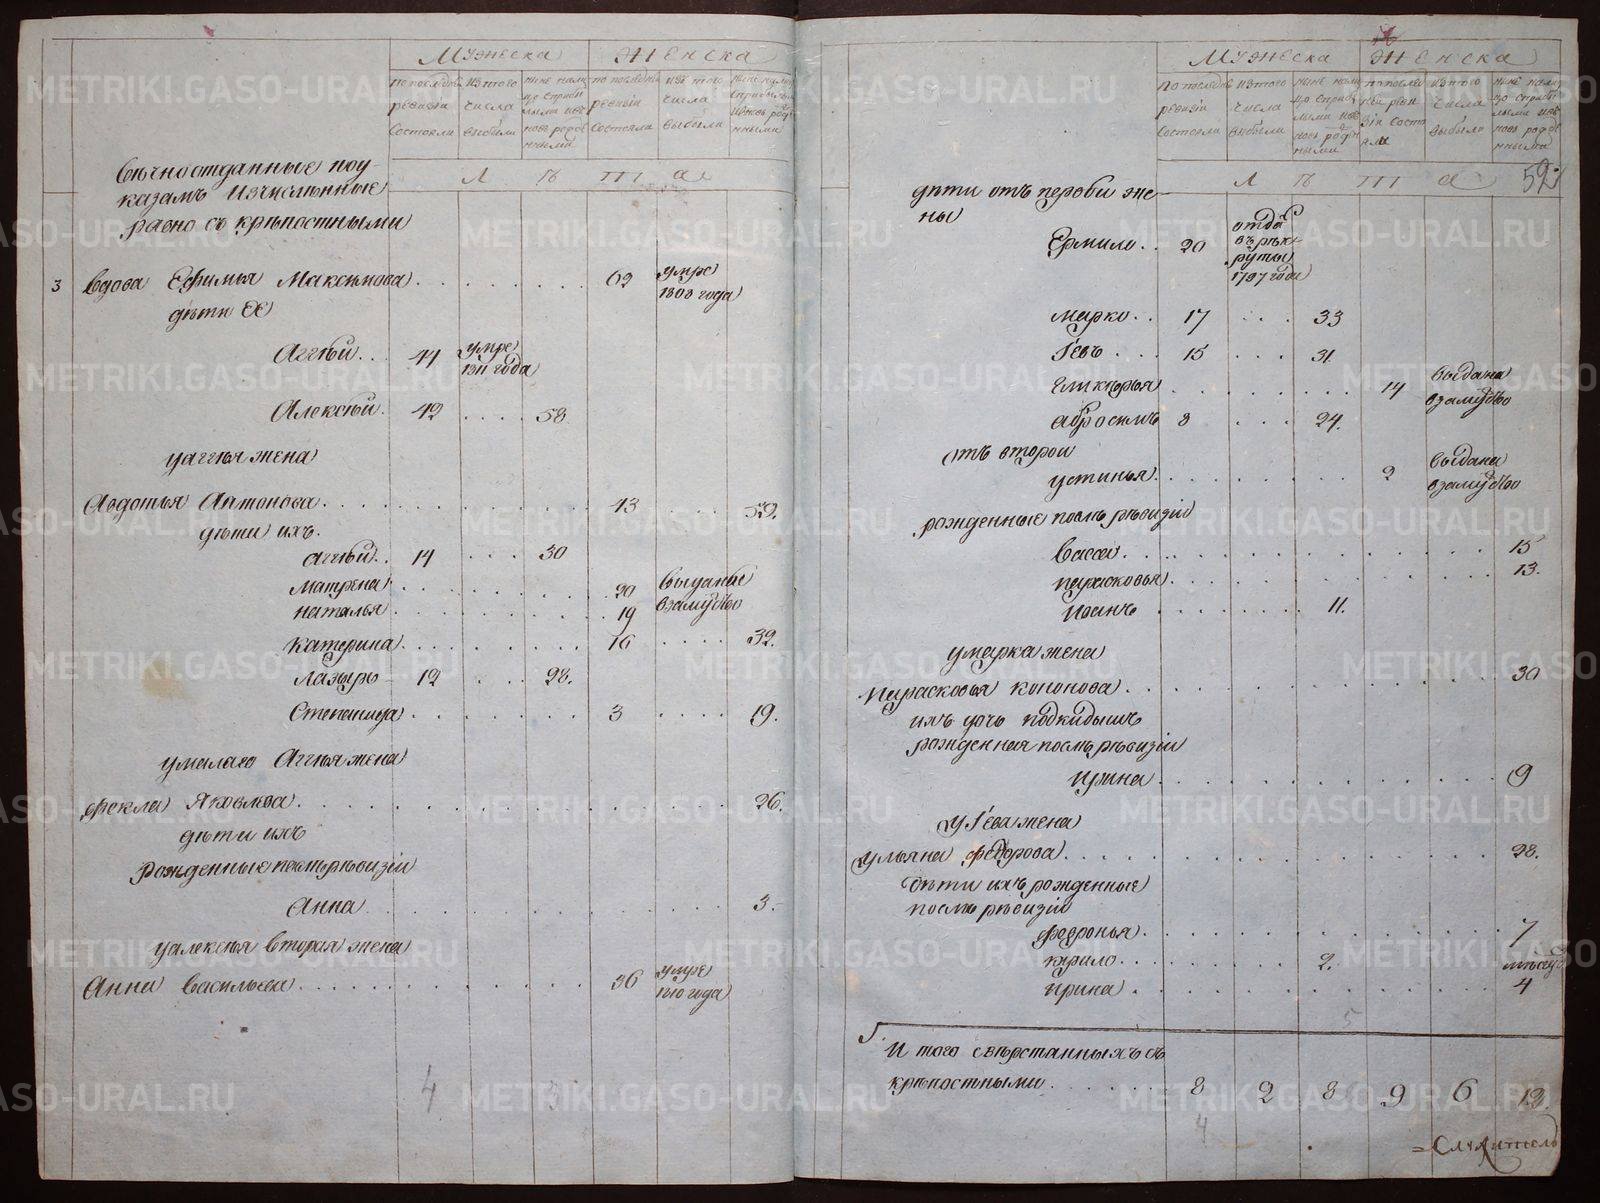 Мужеска Женска
По последней ревизии состояли
из того числа выбыли
ныне налицо с прибылыми и вновь рожденными
по последней ревизии состояли
из того числа выбыли
ныне налицо с прибылыми и вновь рожденными
Лѣта
Вѣчноотданные по у-
казамъ изчисленные
равно съ крѣпостными
3 вдова Ефимья Максимова 62 умре 1808 года
дѣти ее
Аггѣй 44 умре 1811 года
Алексѣй 42 58
у Аггѣя жена
Авдотья Антонова 43 59.
дѣти ихъ.
Аггѣй 14 30
Матрена 20 выданы
Наталья 19 взамужство
Катерина 16 32.
Лазырь 12 28.
Степанида 3 19.
у малаго Аггѣя жена
Фекла Яковлева 26.
дѣти ихъ
рожденные послѣ рѣвизiи
Анна 3.
у Алексѣя вторая жена
Анна Васильева 36 умре 1810 года
4
Мужеска Женска
По последней ревизии состояли
из того числа выбыли
ныне налицо с прибылыми и вновь рожденными
по последней ревизии состояли
из того числа выбыли
ныне налицо с прибылыми и вновь рожденными
Лѣта 59
дѣти отъ первой же-
ны
Ермило 20 отдан въ рекруты 1797 года
Марко 17 33
Iевъ 15 31
Гликерья 14 выдана взамужство
Абросимъ 8 24.
отъ второй
Устинья 2 выдана взамужство
рожденные послѣ рѣвизiи
Васса 15
Парасковья 13.
Иванъ 11.
у Марка жена
Парасковья Кононова 30
ихъ дочь подкидышъ
рожденная послѣ рѣвизiи
Ирина 9
у Iева жена
Ульяна Федорова 28.
дѣти ихъ рожденные
послѣ рѣвизiи
Федронья 7
Кирило 2. месяцов
Ирина 4
И того сверстанныхъ съ
крѣпостными 8 2 8 9 6 13.
4
Служитель
METRIKI.GASO-URAL.RU